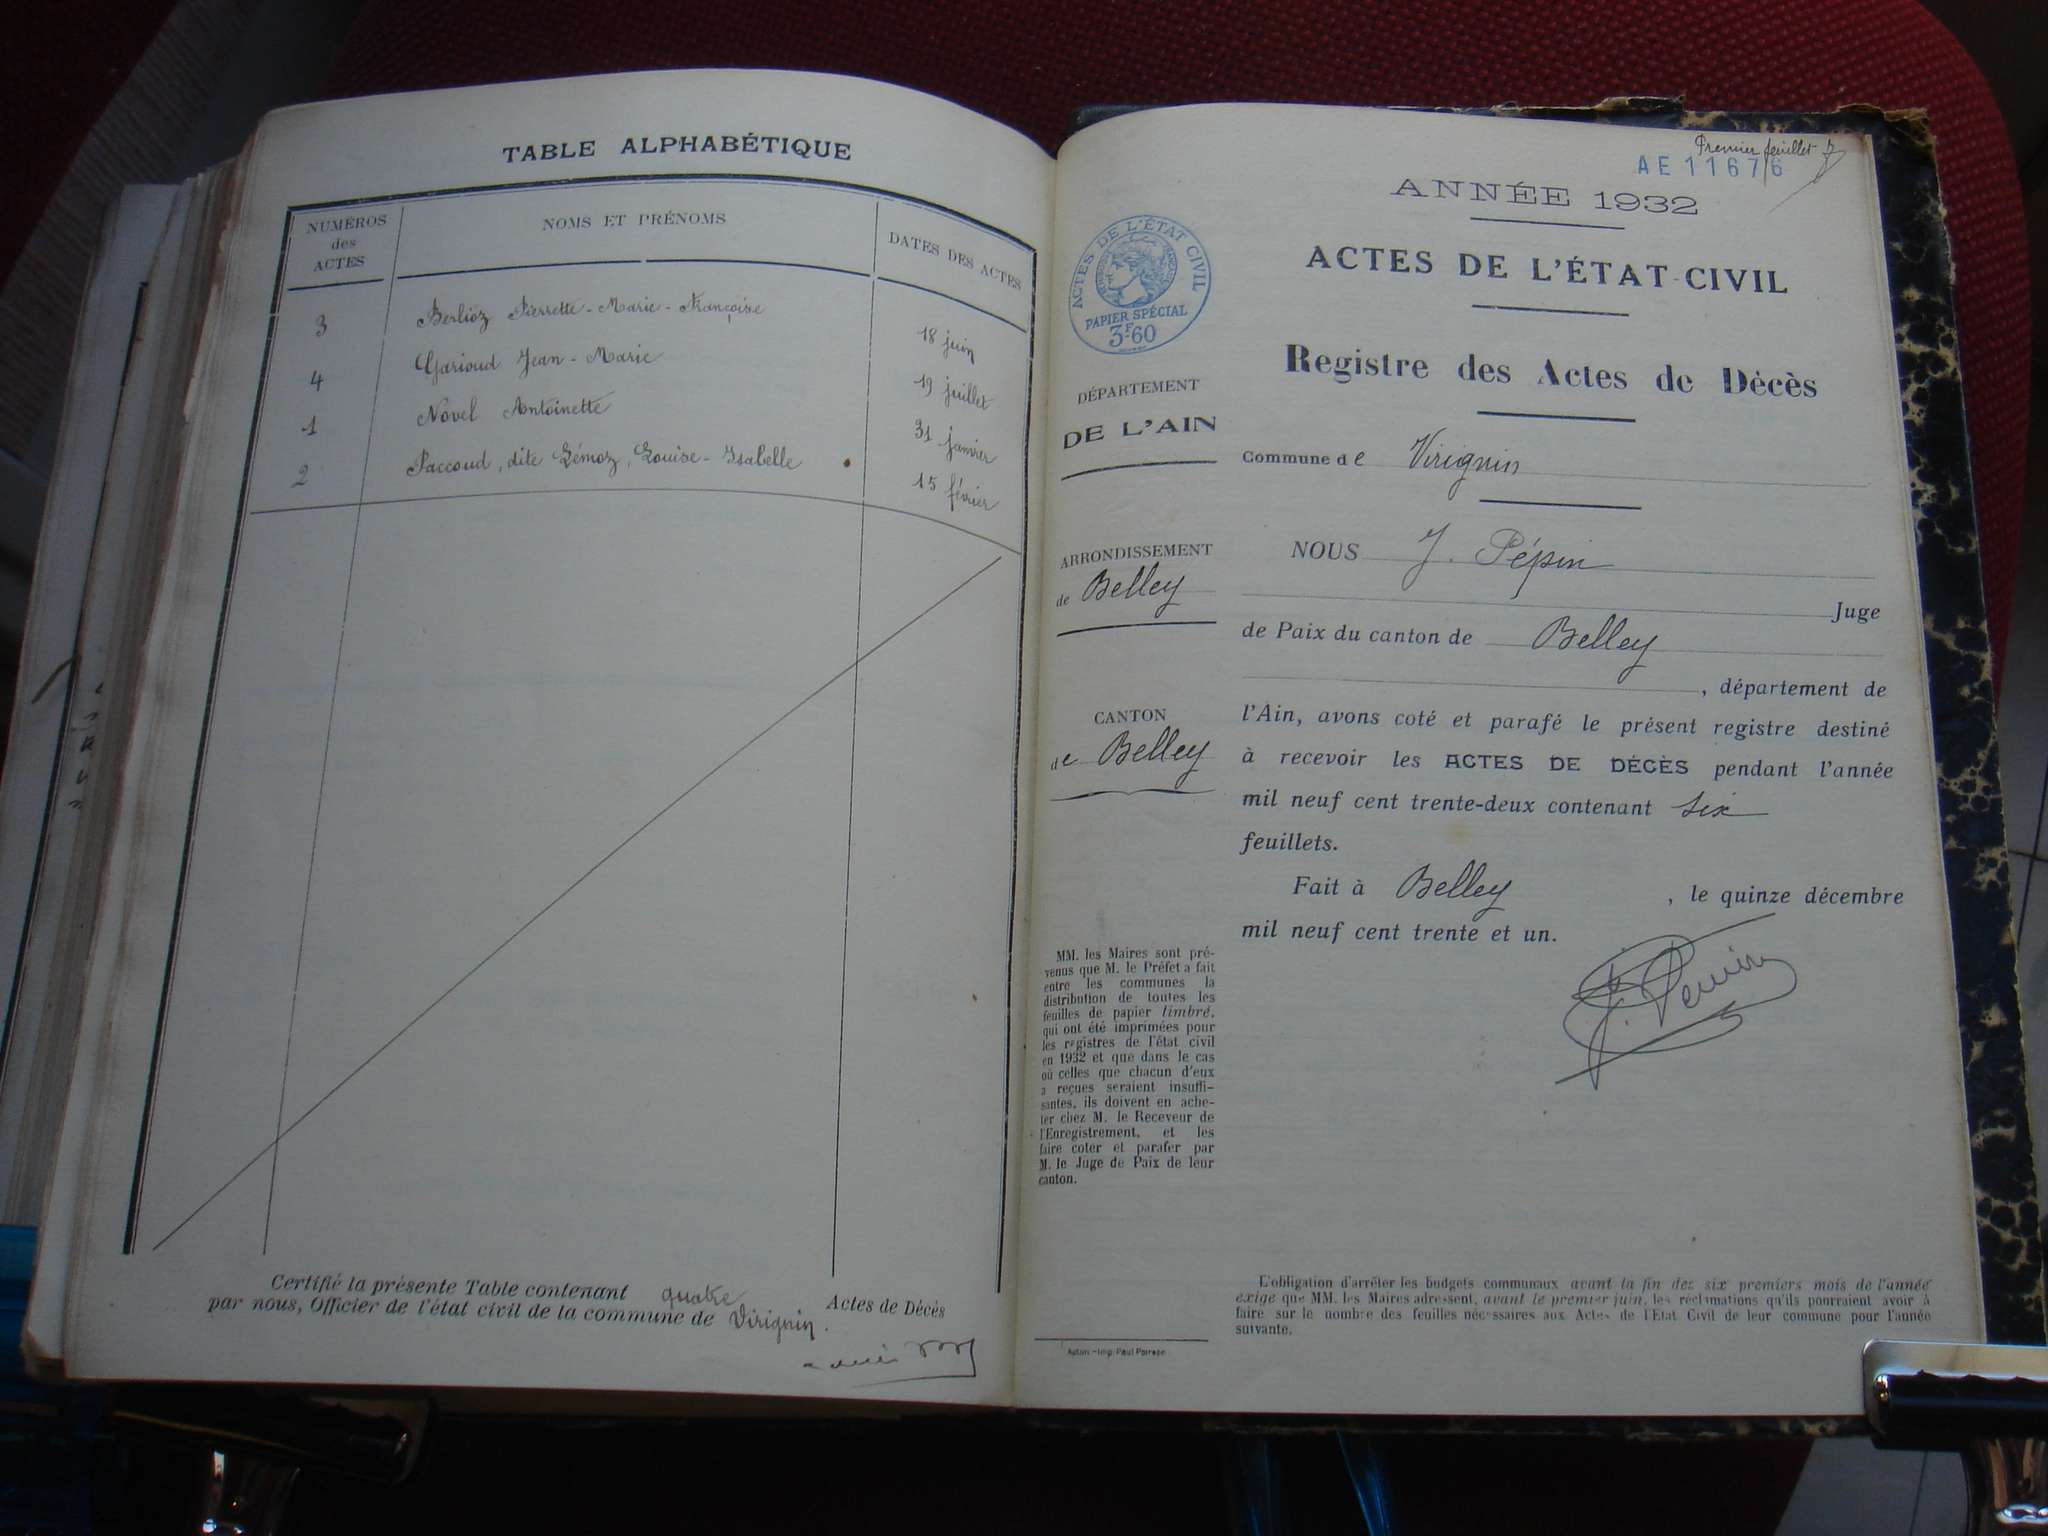 TABLE ALPHABÉTIQUE
NUMÉROS
des
ACTES
NOMS ET PRÉNOMS
DATES DES ACTES
3 Berlioz Pierrette-Marie-Françoise 18 juin
4 Garioud Jean-Marie 19 juillet
1 Novel Antoinette 31 janvier
2 Paccoud, dite Gémoz, Louise-Isabelle 15 février
Certifié la présente Table contenant quatre Actes de Décès
par nous, Officier de l'état civil de la commune de Virignin.
Premier feuillet
AE 11676
ANNÉE 1932
ACTES DE L'ÉTAT CIVIL
PAPIER SPÉCIAL
3F60
ACTES DE L'ÉTAT-CIVIL
Registre des Actes de Décès
DÉPARTEMENT
DE L'AIN
Commune de Virignin
ARRONDISSEMENT
de Belley
CANTON
de Belley
NOUS J. Pépin
Juge
de Paix du canton de Belley
, département de
l'Ain, avons coté et parafé le présent registre destiné
à recevoir les ACTES DE DÉCÈS pendant l'année
mil neuf cent trente-deux contenant six
feuillets.
Fait à Belley, le quinze décembre
mil neuf cent trente et un.
MM. les Maires sont pré-
venus que M. le Préfet a fait
entre les communes la
distribution de toutes les
feuilles de papier timbré,
qui ont été imprimées pour
les registres de l'état civil
en 1932 et que dans le cas
où celles que chacun d'eux
a reçues seraient insuffi-
santes, ils doivent en ache-
ter chez M. le Receveur de
l'Enregistrement, et les
faire coter et parafer par
M. le Juge de Paix de leur
canton.
L'obligation d'arrêter les budgets communaux avant la fin des six premiers mois de l'année
exige que MM. les Maires adressent, avant le premier juin, les réclamations qu'ils pourraient avoir à
faire sur le nombre des feuilles nécessaires aux Actes de l'Etat Civil de leur commune pour l'année
suivante.